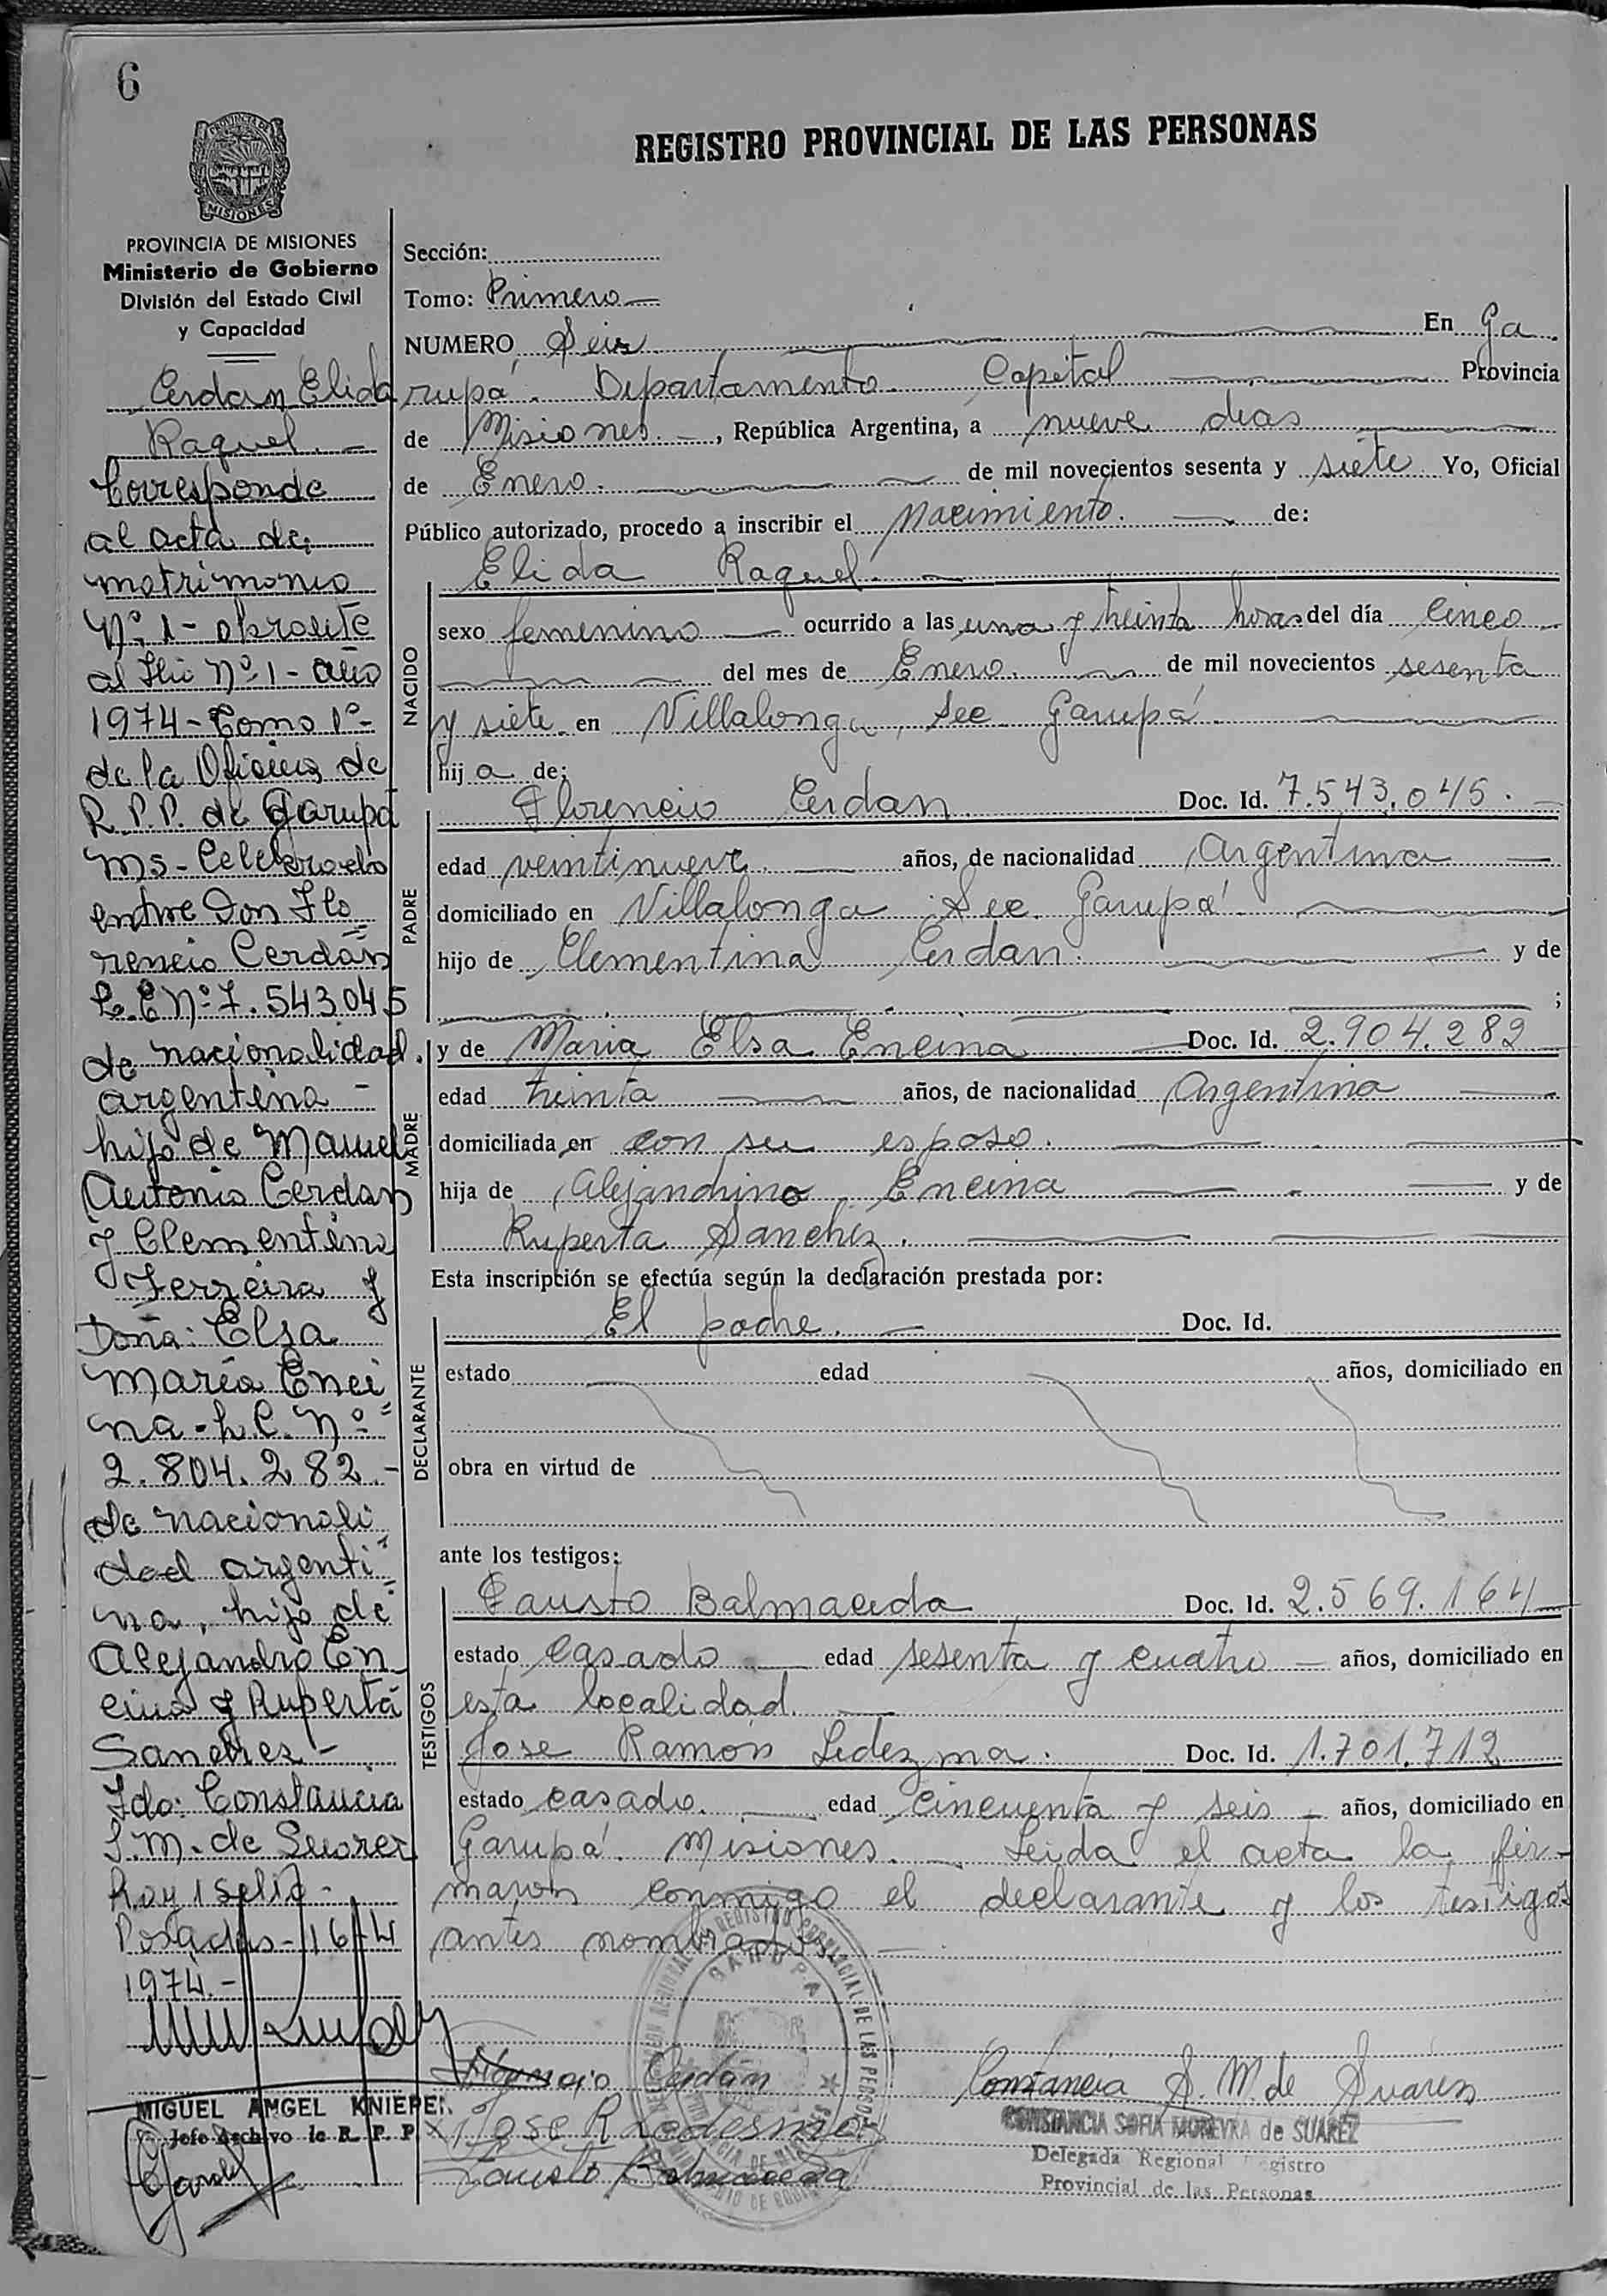 6
REGISTRO PROVINCIAL DE LAS PERSONAS
PROVINCIA DE
MISIONES
PROVINCIA DE MISIONES
Ministerio de Gobierno
División del Estado Civil
y Capacidad
Cerdan Elida
Raquel. -
Corresponde
al acta de
matrimonio
Nº 1- obrante
al folio Nº 1- año
1974- Tomo 1º-
de la Oficina de
R.P.P. de Garupá
Ms- Celebrado
entre Don Flo
rencio Cerdán
L.E Nº 7.543045
de nacionalidad
argentina -
hijo de Manuel
Antonio Cerdan
y Clementina
Ferreira y
Doña: Elsa
María Enci
na - L.C. Nº
2.804.282.-
de nacionali
dad argenti
na, hija de
Alejandro En
cina y Ruperta
Sanchez -
Fdo: Constancia
S.M. de Suarez
Hay 1 sello -
Posadas - 16-4
1974.-
MIGUEL ANGEL KNIEPER
Jefe Archivo de R. P. P.
Sección:
Tomo: Primero
NUMERO Seis En Ga
rupá. Departamento Capital Provincia
de Misiones, República Argentina, a nueve dias
de Enero. de mil novecientos sesenta y siete Yo, Oficial
Público autorizado, procedo a inscribir el Nacimiento. de:
Elida Raquel.
NACIDO
sexo femenino ocurrido a las una y treinta horas del día cinco
del mes de Enero. de mil novecientos sesenta
y siete en Villalonga, Sec Garupá
hij a de:
PADRE
Florencio Cerdan Doc. Id. 7.543.045.
edad veintinueve años, de nacionalidad Argentina
domiciliado en Villalonga Sec. Garupá
hijo de Clementina Cerdan. y de
;
MADRE
y de Maria Elsa Encina Doc. Id. 2.904.282
edad treinta años, de nacionalidad Argentina
domiciliada en con su esposo.
hija de Alejandrino Encina y de
Ruperta Sanchez.
Esta inscripción se efectúa según la declaración prestada por:
DECLARANTE
El padre. Doc. Id.
estado edad años, domiciliado en
obra en virtud de
ante los testigos:
TESTIGOS
Fausto Balmaceda Doc. Id. 2.569.164
estado casado edad sesenta y cuatro años, domiciliado en
esta localidad.
Jose Ramon Ledezma. Doc. Id. 1.701.712
estado casado. edad cincuenta y seis años, domiciliado en
Garupá Misiones. Leida el acta la fir-
maron conmigo el declarante y los testigos
antes nombrados.
GARUPA
Florencio Cerdán
Jose R Ledesma
Fausto Balmaceda
Constancia S. M. de Suarez
CONSTANCIA SOFIA MOREYRA de SUAREZ
Delegada Regional Registro
Provincial de las Personas